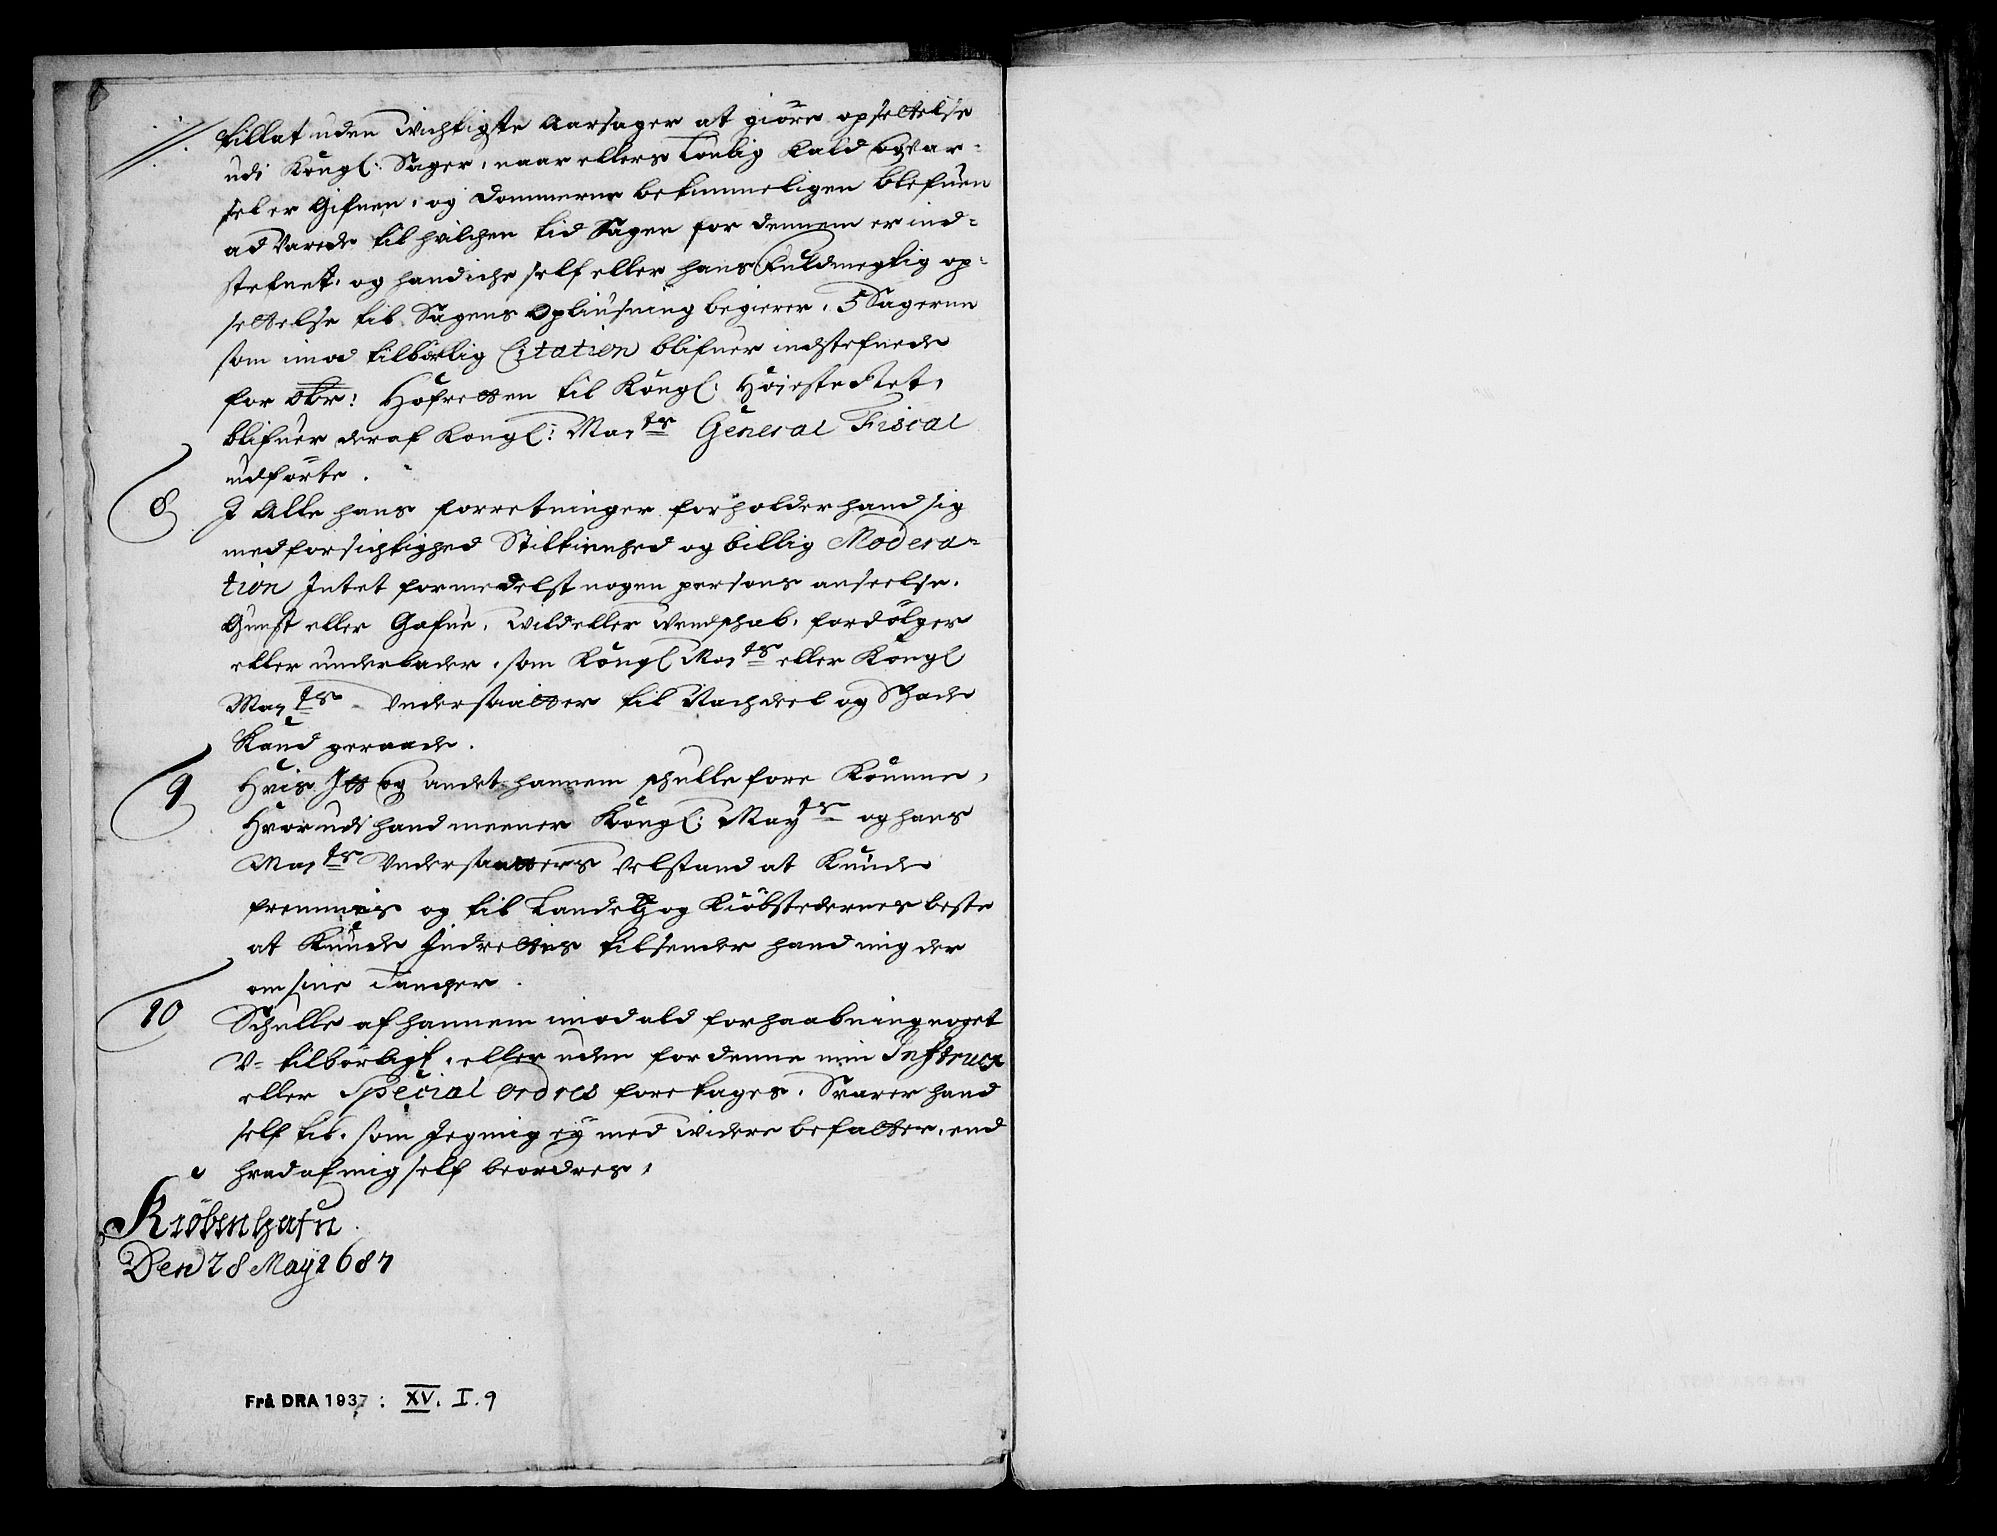 tillat uden Wichtigste Aarsager at giöre opsettelse
udi Kongl: Sager, naar ellers Loulig Kald og Var-
sel er Gifuen, og Dommerne bekummeligen blefuen
advarede til hvilchen tid Sagen for dennem er ind-
stefnet, og hand iche self eller hans fuldmegtig op-
settelse til Sagens Opliusning begierer, Sagerne
som imod tilbörlig Citation blifuer indstefnede
for Ober: Hofretten til Kongl: Höjeste Ret,
blifuer deraf Kongl: Mayts General Fiscal
udförte.
8 J Alle hans forretninger forholder hand sig
med forsichtighed Stiltienhed og billig Modera-
tion Intet formedelst nogen persons anseelse,
Gunst eller Gafue, Wild eller Wendschab, fordölger
eller underlader, som Kongl Mayts eller Kongl
Mayts Vndersaatter til Nachdeel og Schade
Kand geraade.
9 Hvis Jtt og andet hannem schulle fore Komme,
Hvorudi hand meener Kongl: Mayts og hans
Mayts Vndersaatters Velstand at Kunde
fremmis og til Landetz og Kiöbstedernes beste
at Kunde Jndrettis tilsender hand mig der
om sine Tancher.
10 Schulle af hannem imod ald forhaabning noget
V-tilbörligt, eller uden for denne min Instrux
eller Special Ordres foretages, Svarer hand
self til, som Jeg mig ey med widere befatter, end
hvad af mig self beordres,
Kiöbenhafn
Den 28 May 1687
Frå DRA 1937: XV. I. 9